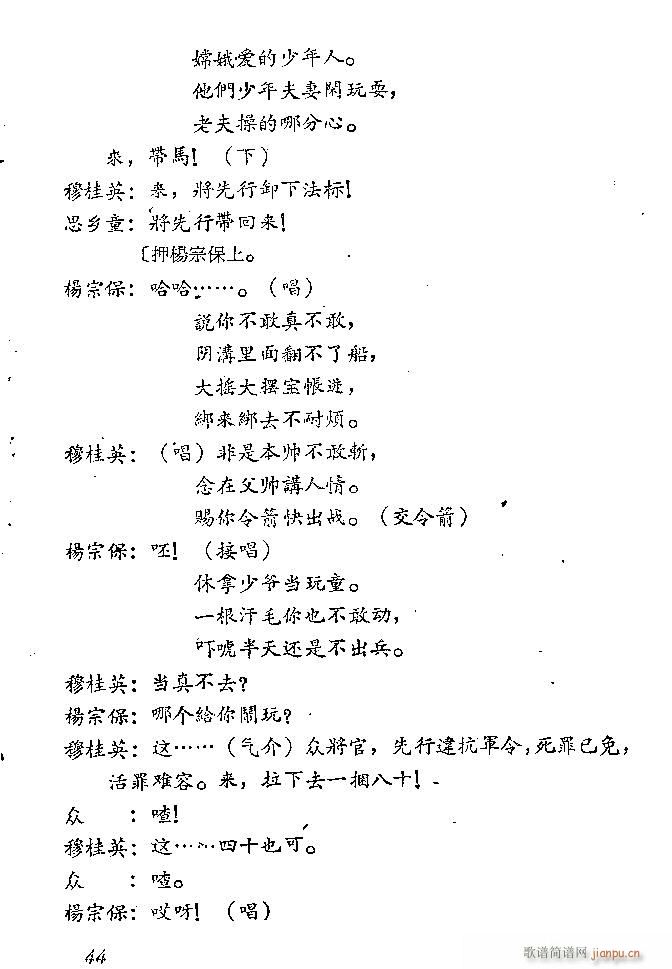 嫦娥爱的少年人。
他們少年夫妻閑玩耍，
老夫操的哪分心。
来，帶馬！（下）
穆桂英：来，將先行卸下法标！
思乡童：將先行帶回来！
〔押楊宗保上。
楊宗保：哈哈……。（唱）
說你不敢真不敢，
阴溝里面翻不了船，
大搖大摆宝帳进，
綁来綁去不耐煩。
穆桂英：（唱）非是本帅不敢斬，
念在父帅講人情。
賜你令箭快出战。（交令箭）
楊宗保：呸！（接唱）
休拿少爷当玩童。
一根汗毛你也不敢动，
吓唬半天还是不出兵。
穆桂英：当真不去？
楊宗保：哪个給你鬧玩？
穆桂英：这……（气介）众將官，先行違抗軍令，死罪已免，
活罪难容。来，拉下去一捆八十！
众　：喳！
穆桂英：这……四十也可。
众　：喳。
楊宗保：哎呀！（唱）
44
歌谱简谱网
jianpu.cn